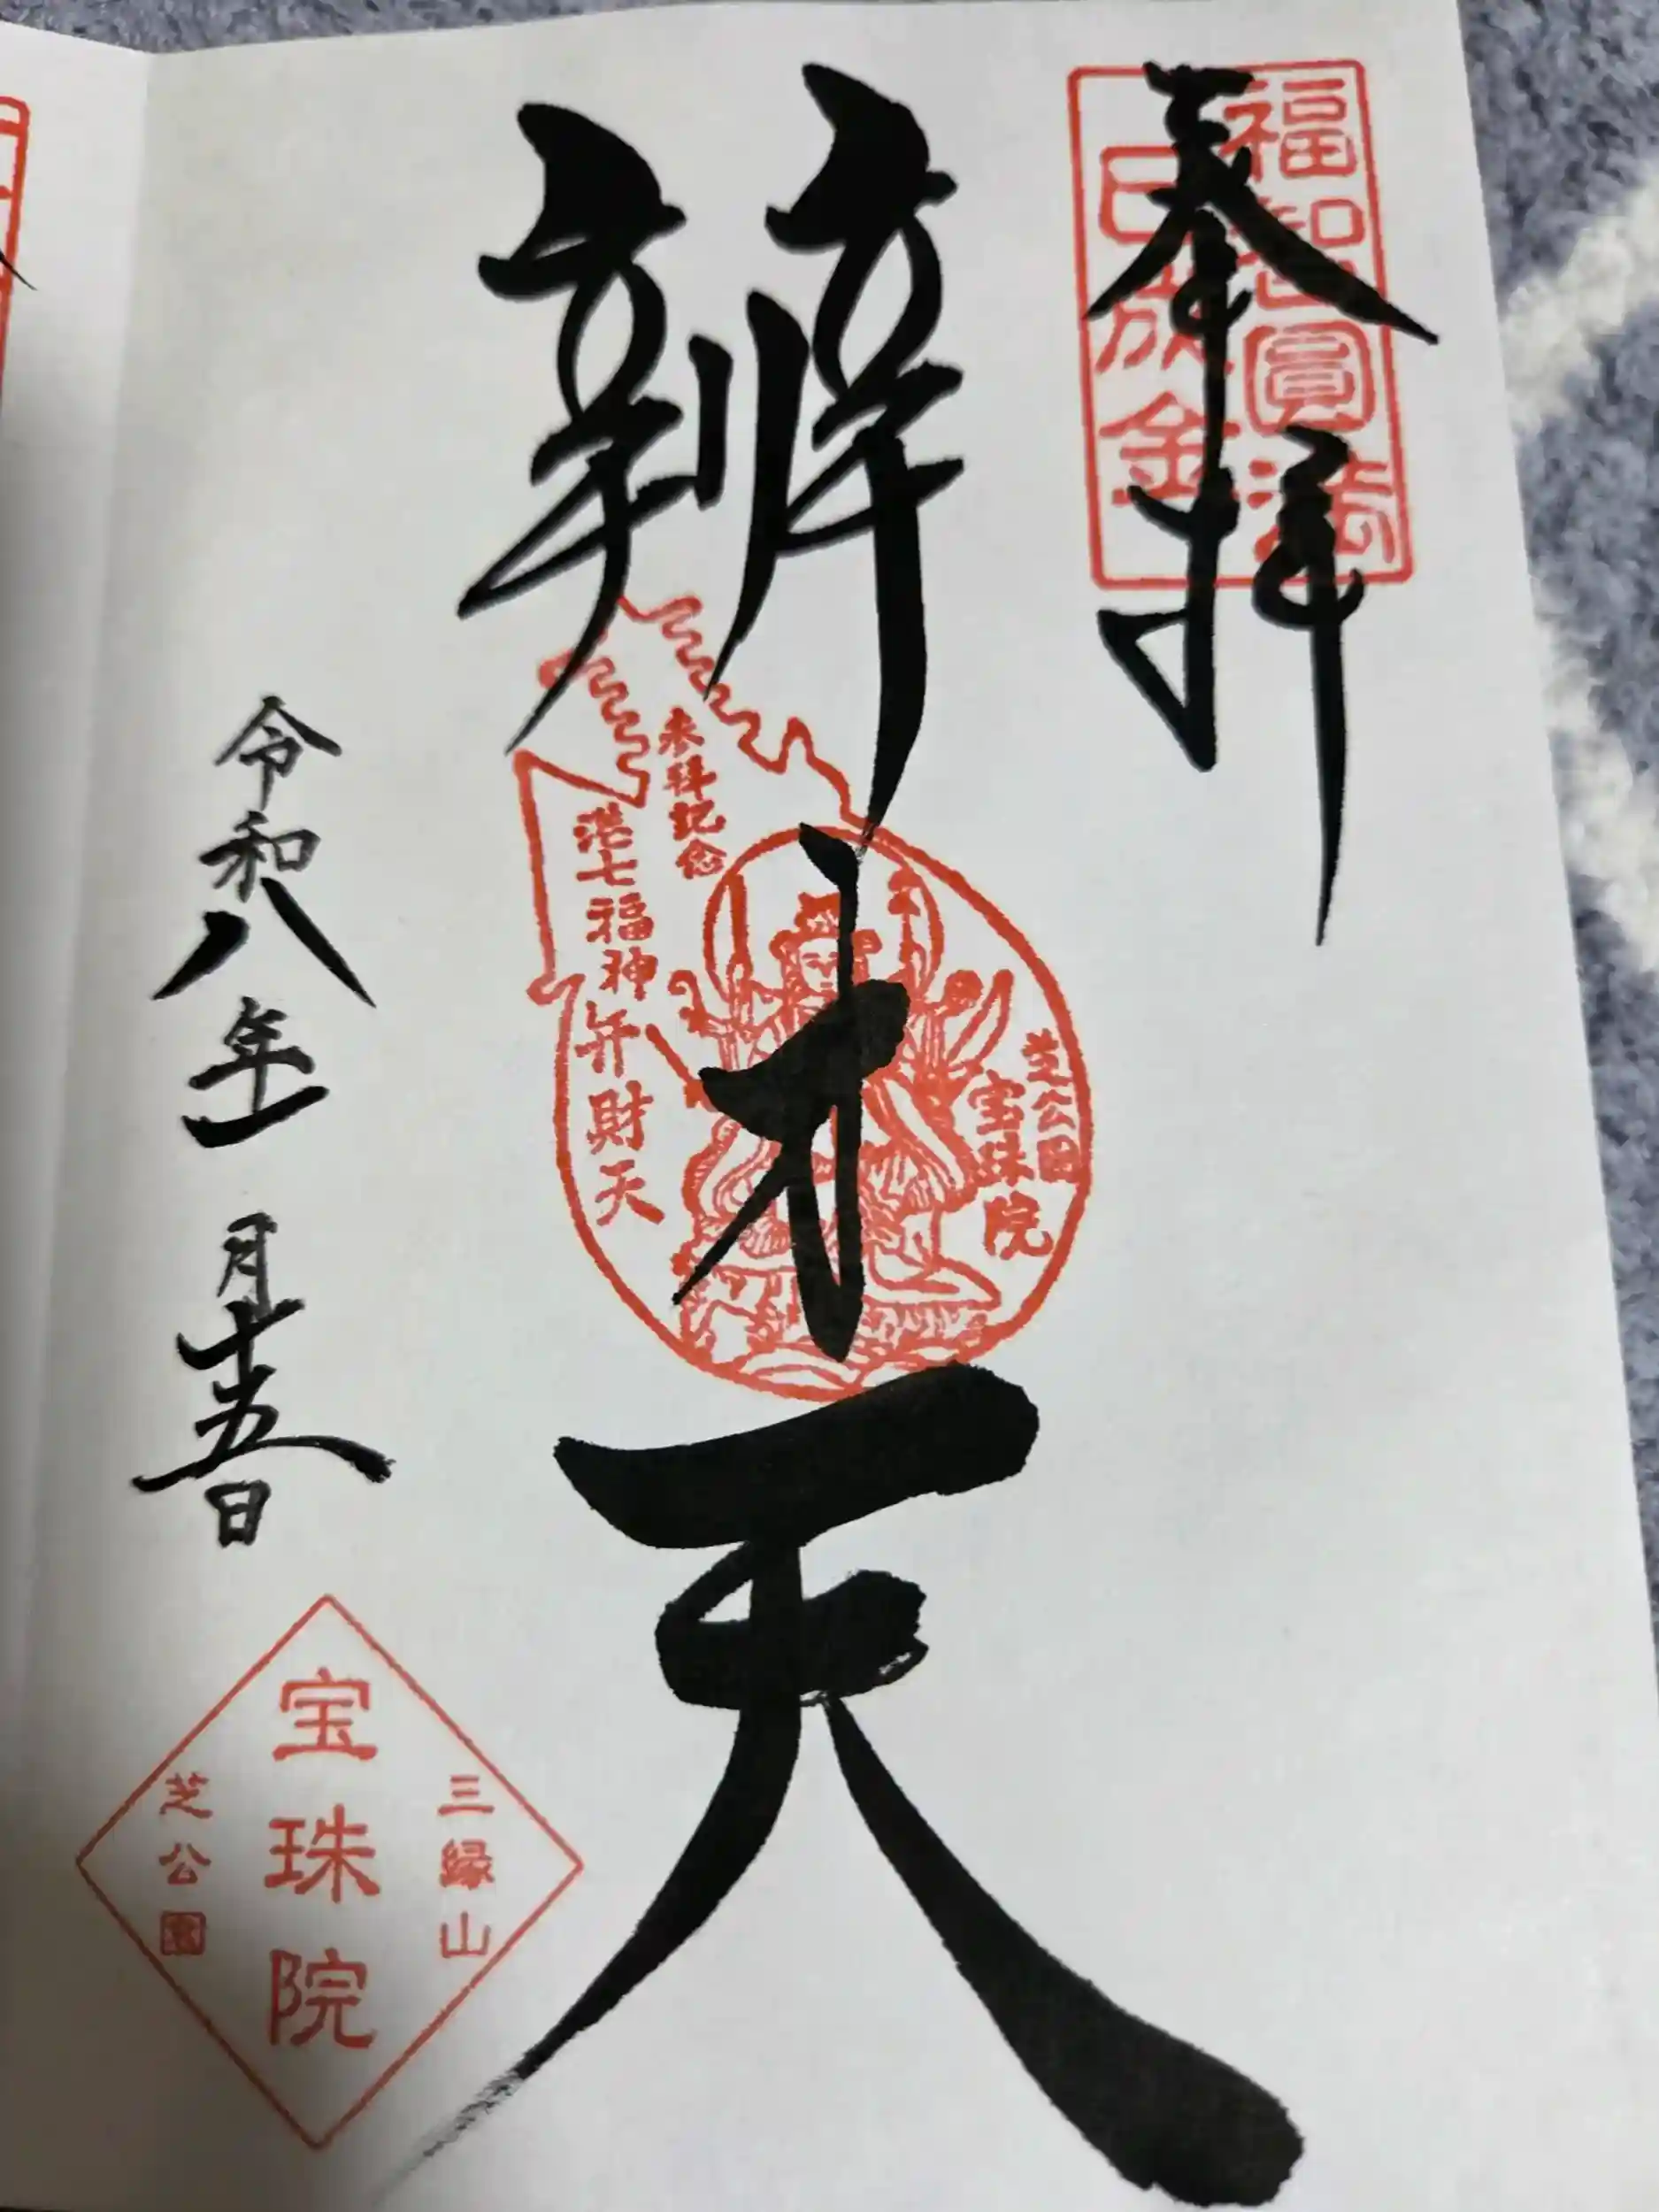 奉拝
福智圓満
辨才天
参拝記念
港七福神
弁財天
芝公園
宝珠院
令和八年一月十五日
三縁山
宝珠院
芝公園